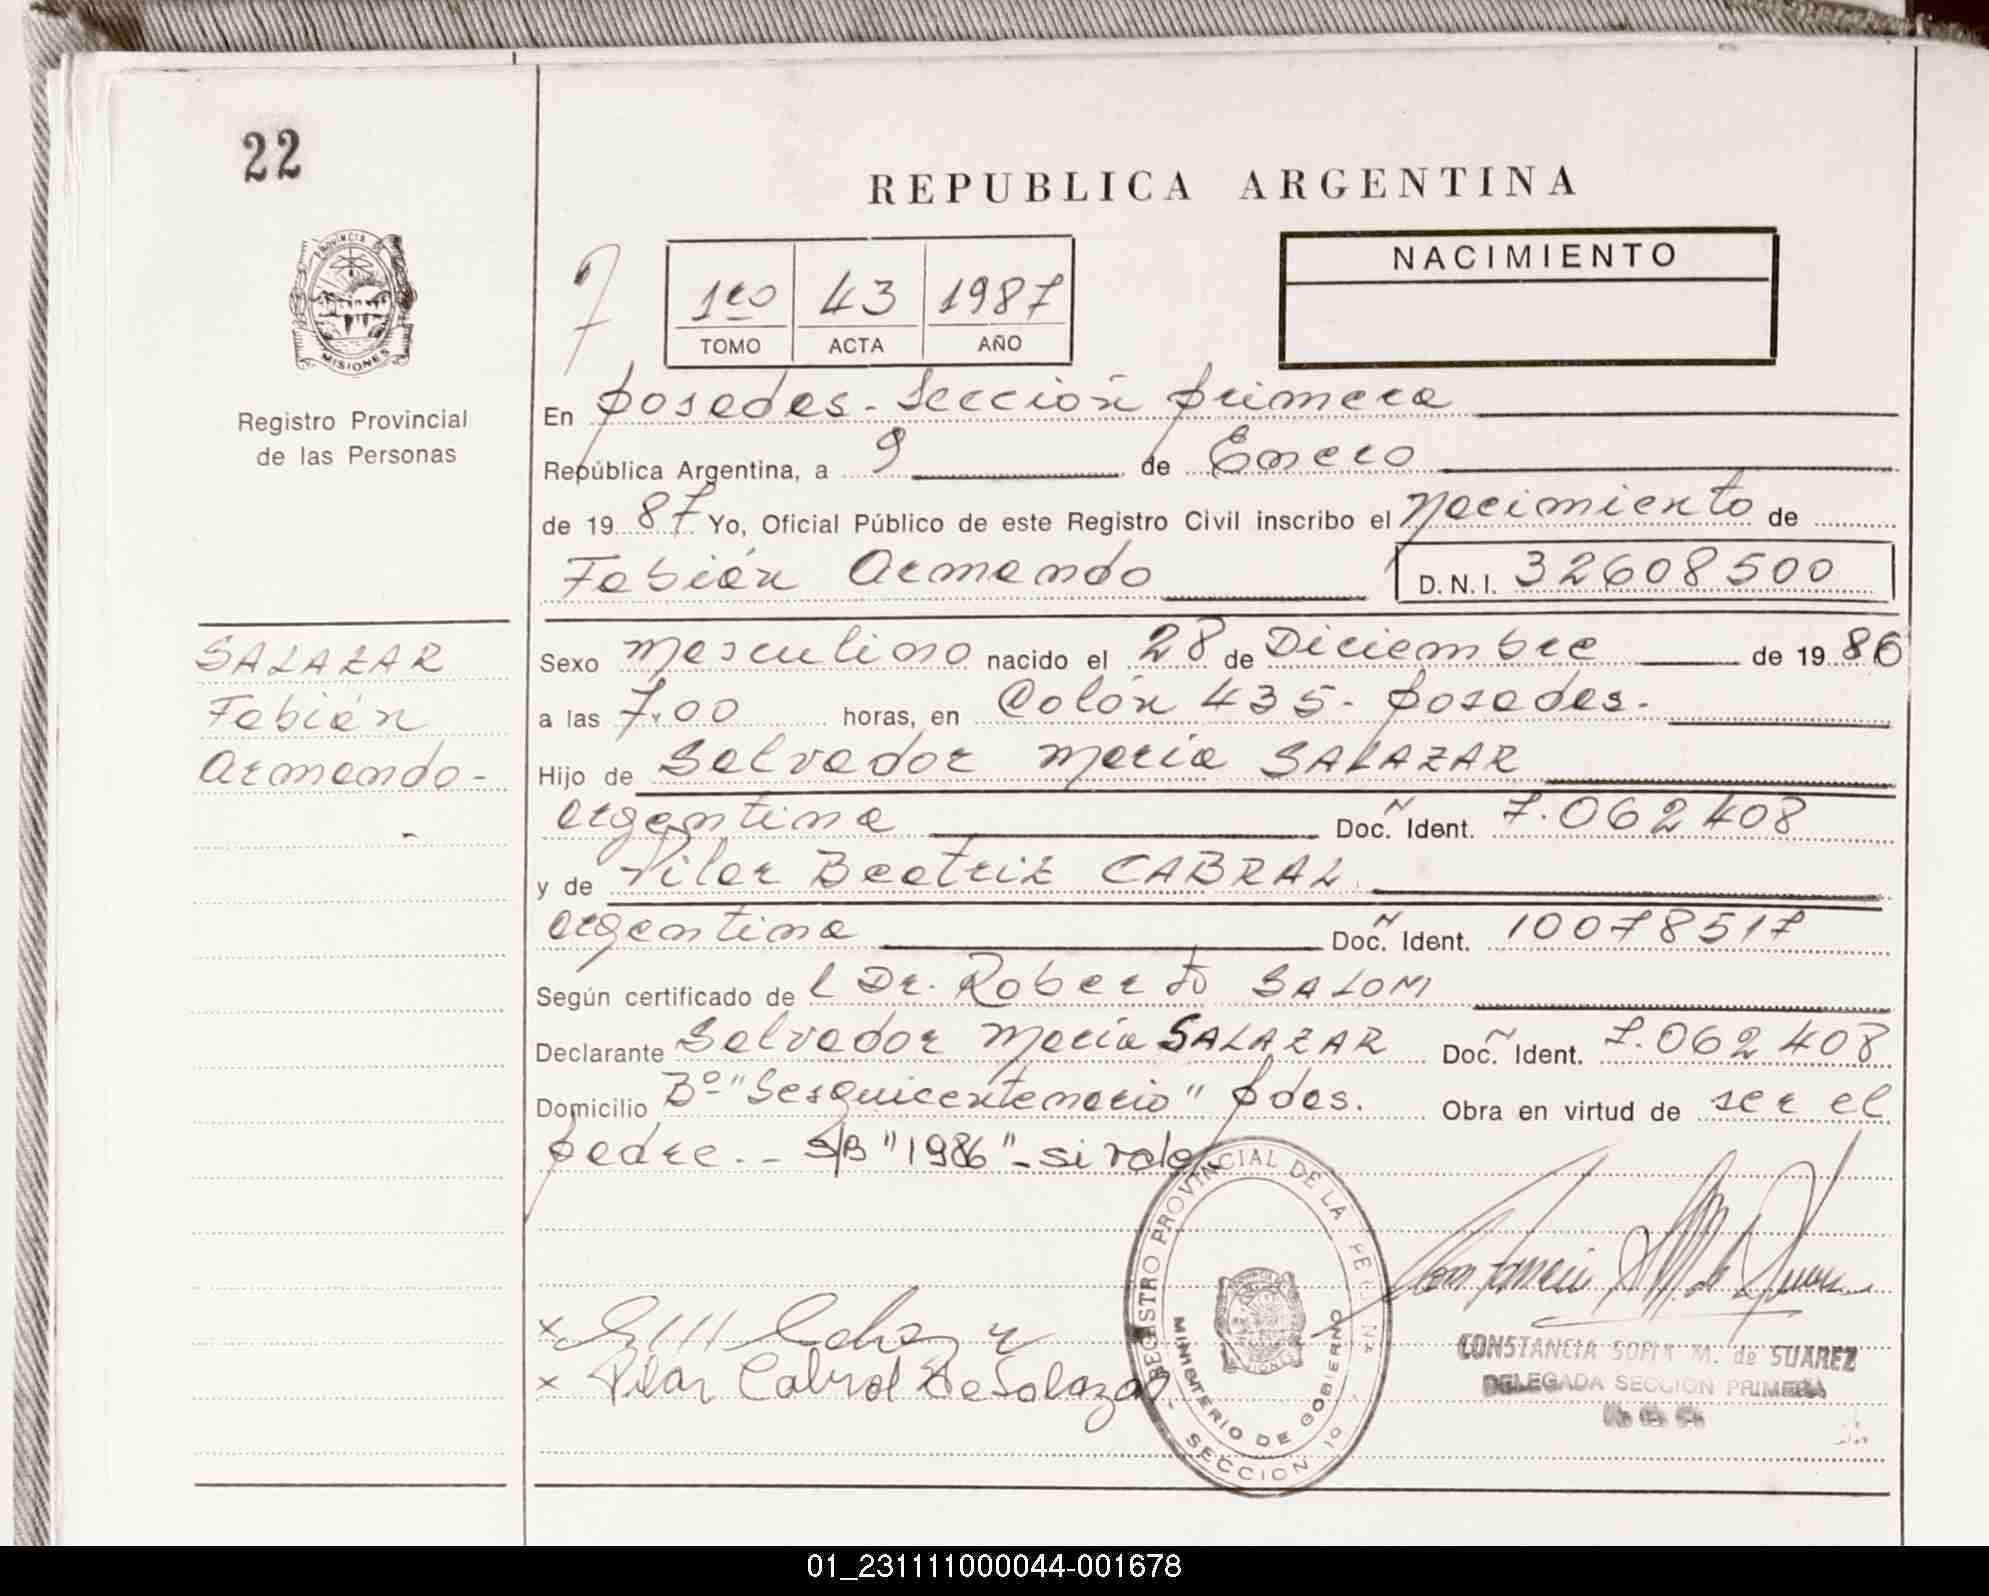 22
PROVINCIA DE
MISIONES
Registro Provincial
de las Personas
SALAZAR
Fabián
Armando-
REPUBLICA ARGENTINA
7
1ro 43 1987
TOMO ACTA AÑO
NACIMIENTO
En posadas- Sección primera
República Argentina, a 9 de Enero
de 19 87 Yo, Oficial Público de este Registro Civil inscribo el Nacimiento de
Fabián Armando D.N.I. 32608500
Sexo masculino nacido el 28 de Diciembre de 19 86
a las 7.00 horas, en Colón 435- posadas.
Hijo de Salvador María SALAZAR
argentina Doc. Ident. 7.062408
y de Pilar Beatriz CABRAL
argentina Doc. Ident. 10078517
Según certificado de l Dr. Roberto SALOM
Declarante Salvador María SALAZAR Doc. Ident. 7.062408
Domicilio Bº "Sesquicentenario" pdas. Obra en virtud de ser el
padre.-- S/B "1986"- si vale
REGISTRO PROVINCIAL DE LA
MINISTERIO DE GOBIERNO
SECCION 1º
x
x Pilar Cabral de Salazar
CONSTANCIA SOFIA M. de SUAREZ
DELEGADA SECCION PRIMERA
01_231111000044-001678